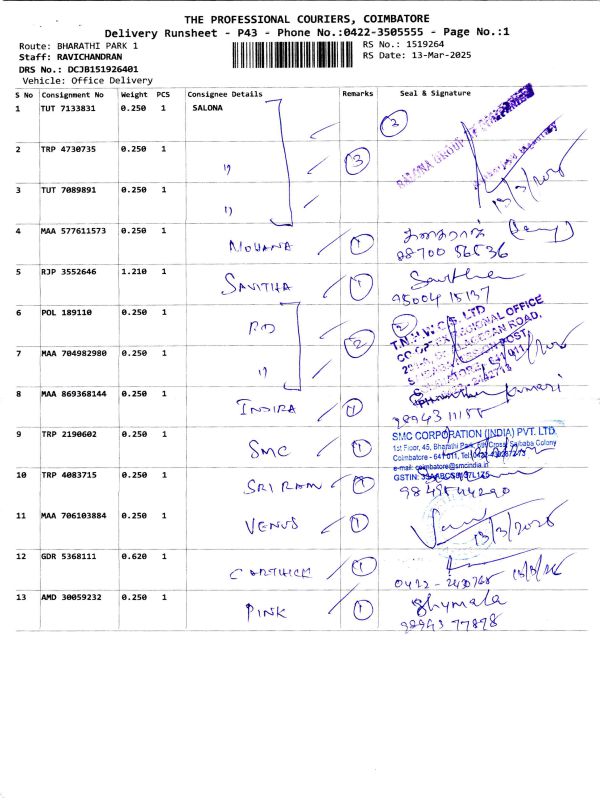 THE PROFESSIONAL COURIERS, COIMBATORE
Delivery Runsheet - P43 - Phone No.:0422-3505555 - Page No.:1
Route: BHARATHI PARK 1
RS No.: 1519264
Staff: RAVICHANDRAN
RS Date: 13-Mar-2025
DRS No.: DCJB151926401
Vehicle: Office Delivery
S No Consignment No Weight PCS Consignee Details Remarks Seal & Signature
1 TUT 7133831 0.250 1 SALONA 2
SALONA GROUP OF
2 TRP 4730735 0.250 1 " 3
3 TUT 7089891 0.250 1 "
13/3/2025
4 MAA 577611573 0.250 1 MOHANA 1
88700 56636
5 RJP 3552646 1.210 1 SAVITHA 1 Savitha
95004 15137
6 POL 189110 0.250 1 RD 2 2
T.N.H.W.C.S. LTD
CO-OPTEX REGIONAL OFFICE
7 MAA 704982980 0.250 1 "
8 MAA 869368144 0.250 1 INDIRA 1 Kumari
98943 11188
9 TRP 2190602 0.250 1 SMC 1
SMC CORPORATION (INDIA) PVT. LTD.
1st Floor, 45, Bharathi Park, 6th Cross, Saibaba Colony
Coimbatore - 641 011, Tel:
e-mail: coimbatore@smcindia.in
GSTIN:
10 TRP 4083715 0.250 1 SRI RAM 1
9842544290
11 MAA 706103884 0.250 1 VENUS 1
13/3/2025
12 GDR 5368111 0.620 1 CARTHICK 1
0422 - 2430768
13 AMD 30059232 0.250 1 PINK 1 Shymala
98943 77878